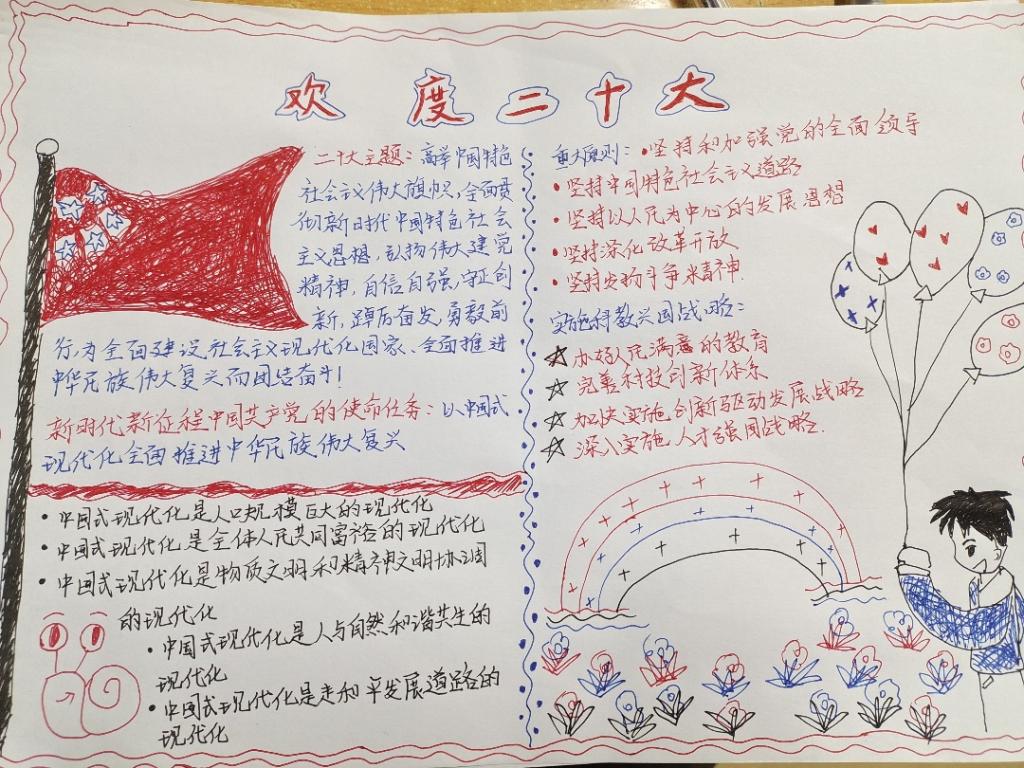 欢度二十大
二十大主题：高举中国特色
社会主义伟大旗帜，全面贯
彻新时代中国特色社会
主义思想，弘扬伟大建党
精神，自信自强，守正创
新，踔厉奋发，勇毅前
行，为全面建设社会主义现代化国家、全面推进
中华民族伟大复兴而团结奋斗！
新时代新征程中国共产党的使命任务：以中国式
现代化全面推进中华民族伟大复兴
• 中国式现代化是人口规模巨大的现代化
• 中国式现代化是全体人民共同富裕的现代化
• 中国式现代化是物质文明和精神文明协调
的现代化
• 中国式现代化是人与自然和谐共生的
现代化
• 中国式现代化是走和平发展道路的
现代化
重大原则：• 坚持和加强党的全面领导
• 坚持中国特色社会主义道路
• 坚持以人民为中心的发展思想
• 坚持深化改革开放
• 坚持发扬斗争精神.
实施科教兴国战略：
☆ 办好人民满意的教育
☆ 完善科技创新体系
☆ 加快实施创新驱动发展战略
☆ 深入实施人才强国战略.